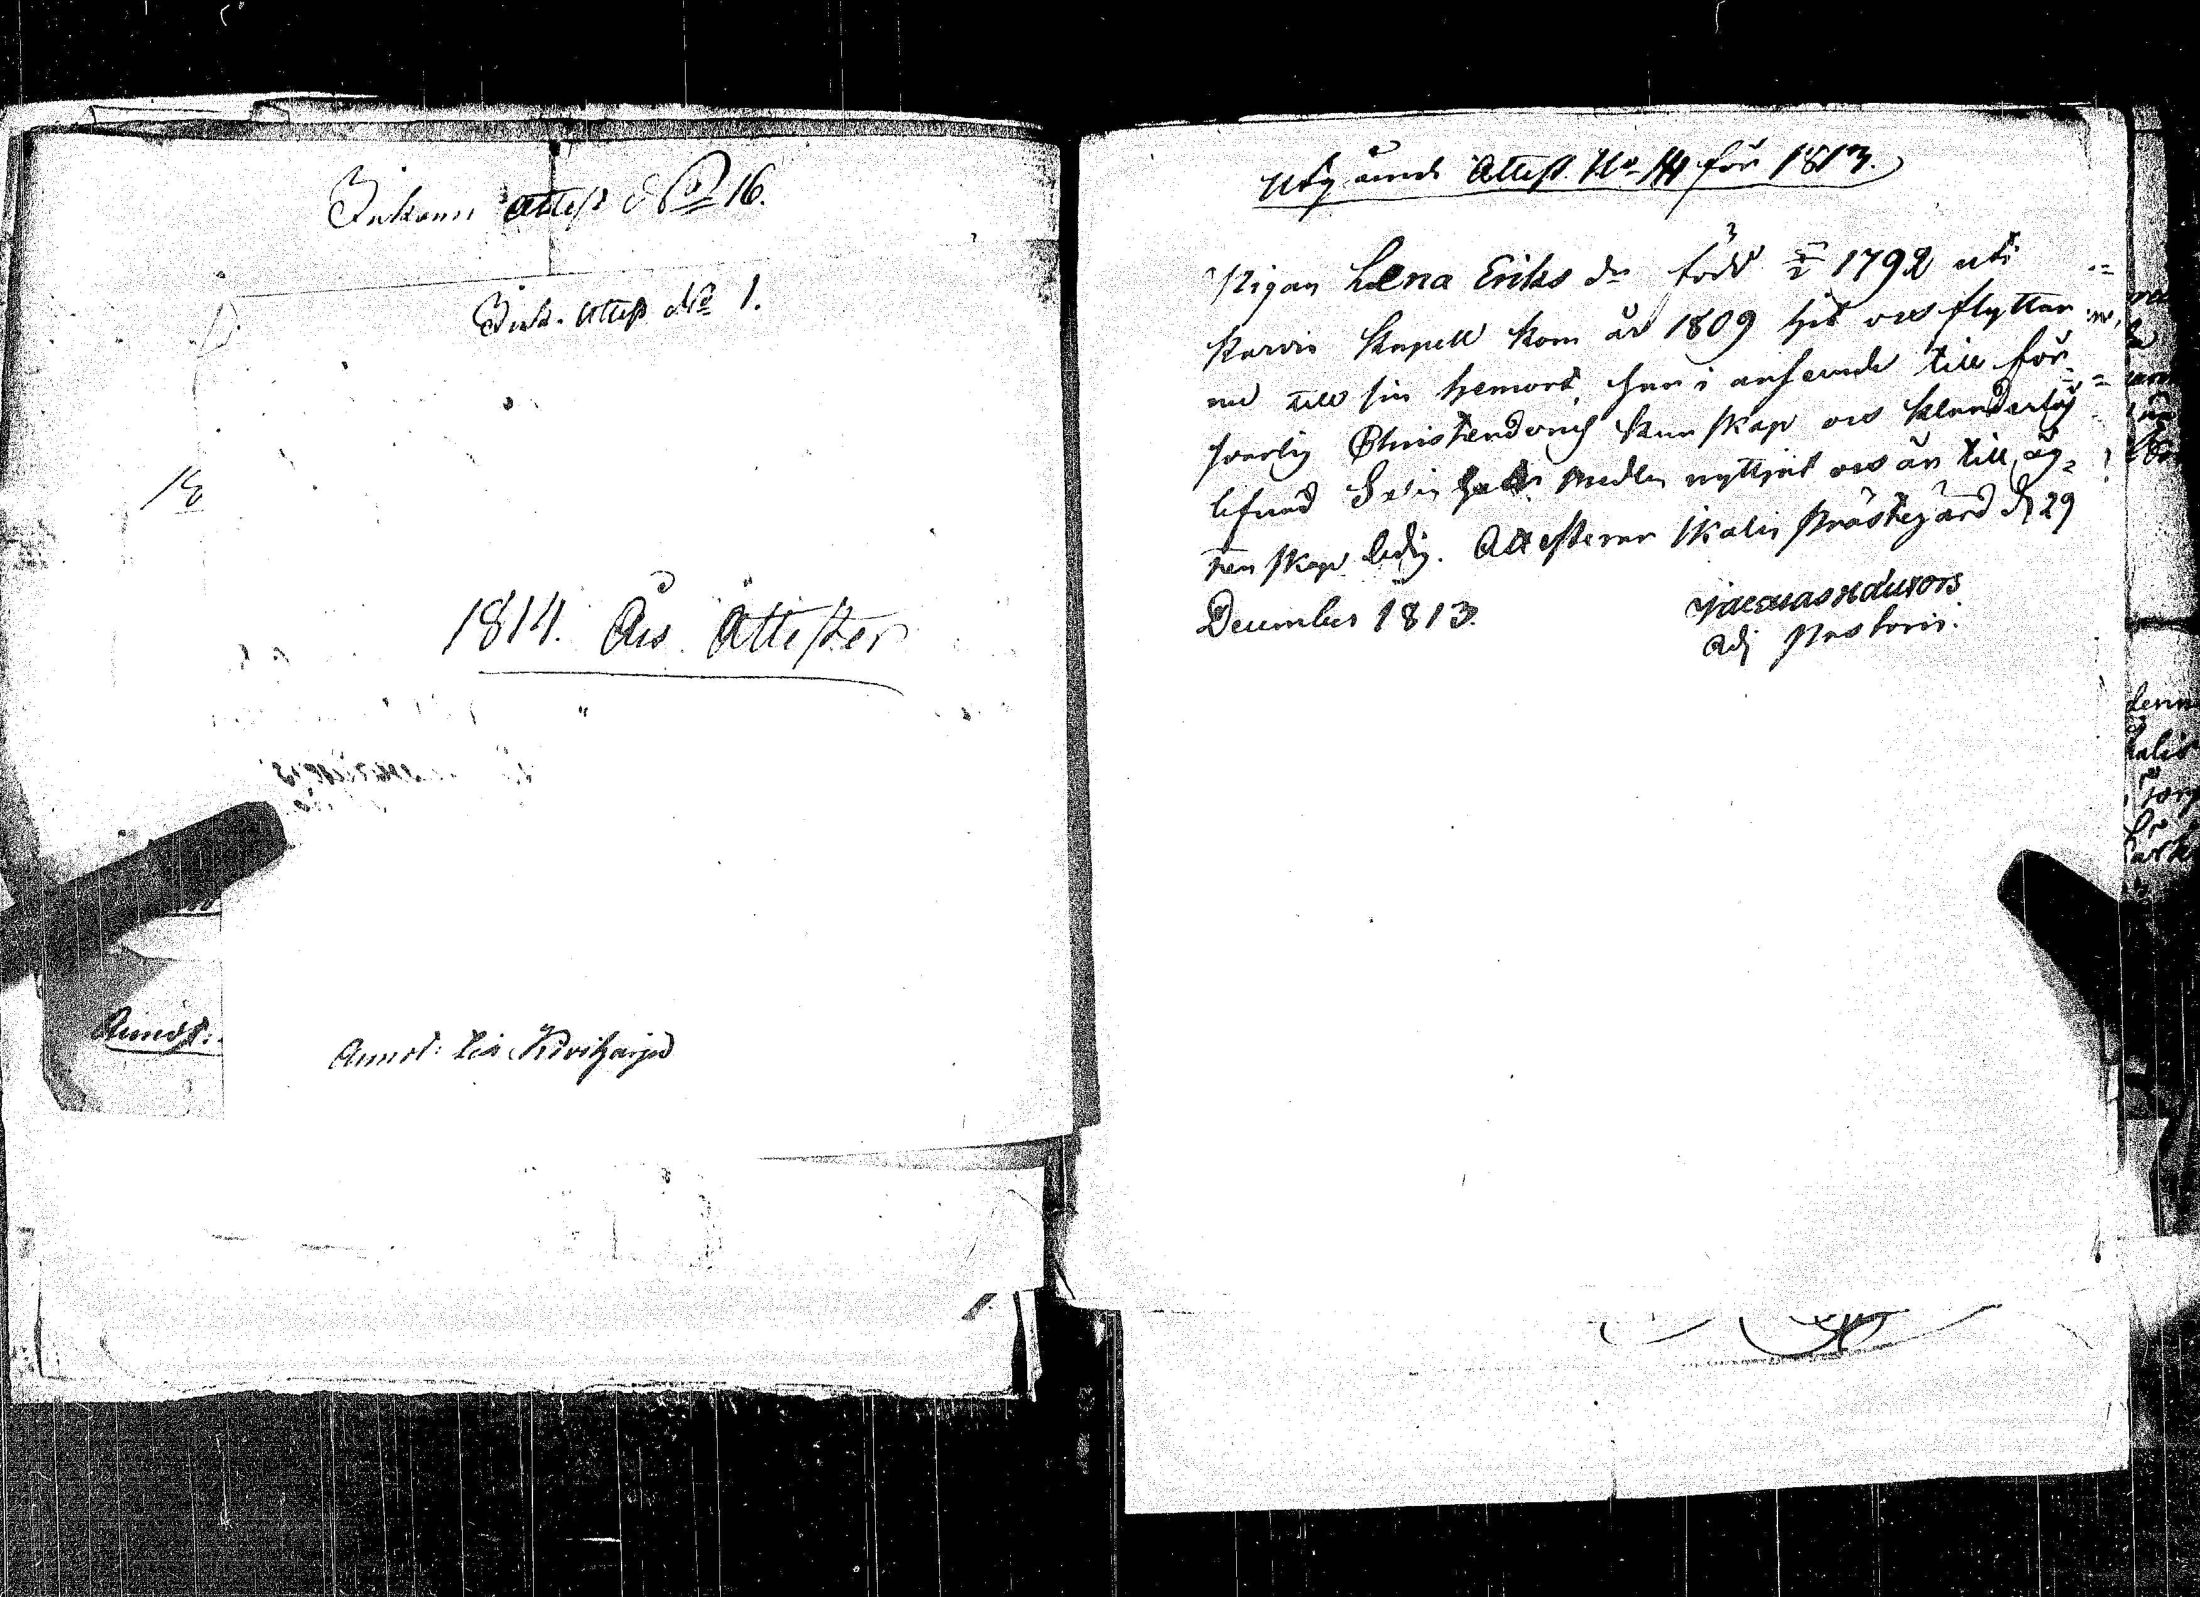 Inkomm attest N:o 16.
Ink. Attest N:o 1.
1814. Års Attester
Annot:
Annot: till Kivijärvi
Utgående Attest No 14 för 1813.
Pigan Lena Eriks dr född 1792 uti
Karvia Kapell kom år 1809 hit och flyttar
nu till sin hemort, har i anseende till för-
svarlig Christendoms kunskap och klanderlös
lefnad Salighets medlen nyttjat och är till äg-
tenskap ledig. Attesterar Ikalis Prästegård d 29
December 1813.
Adj Pastoris.